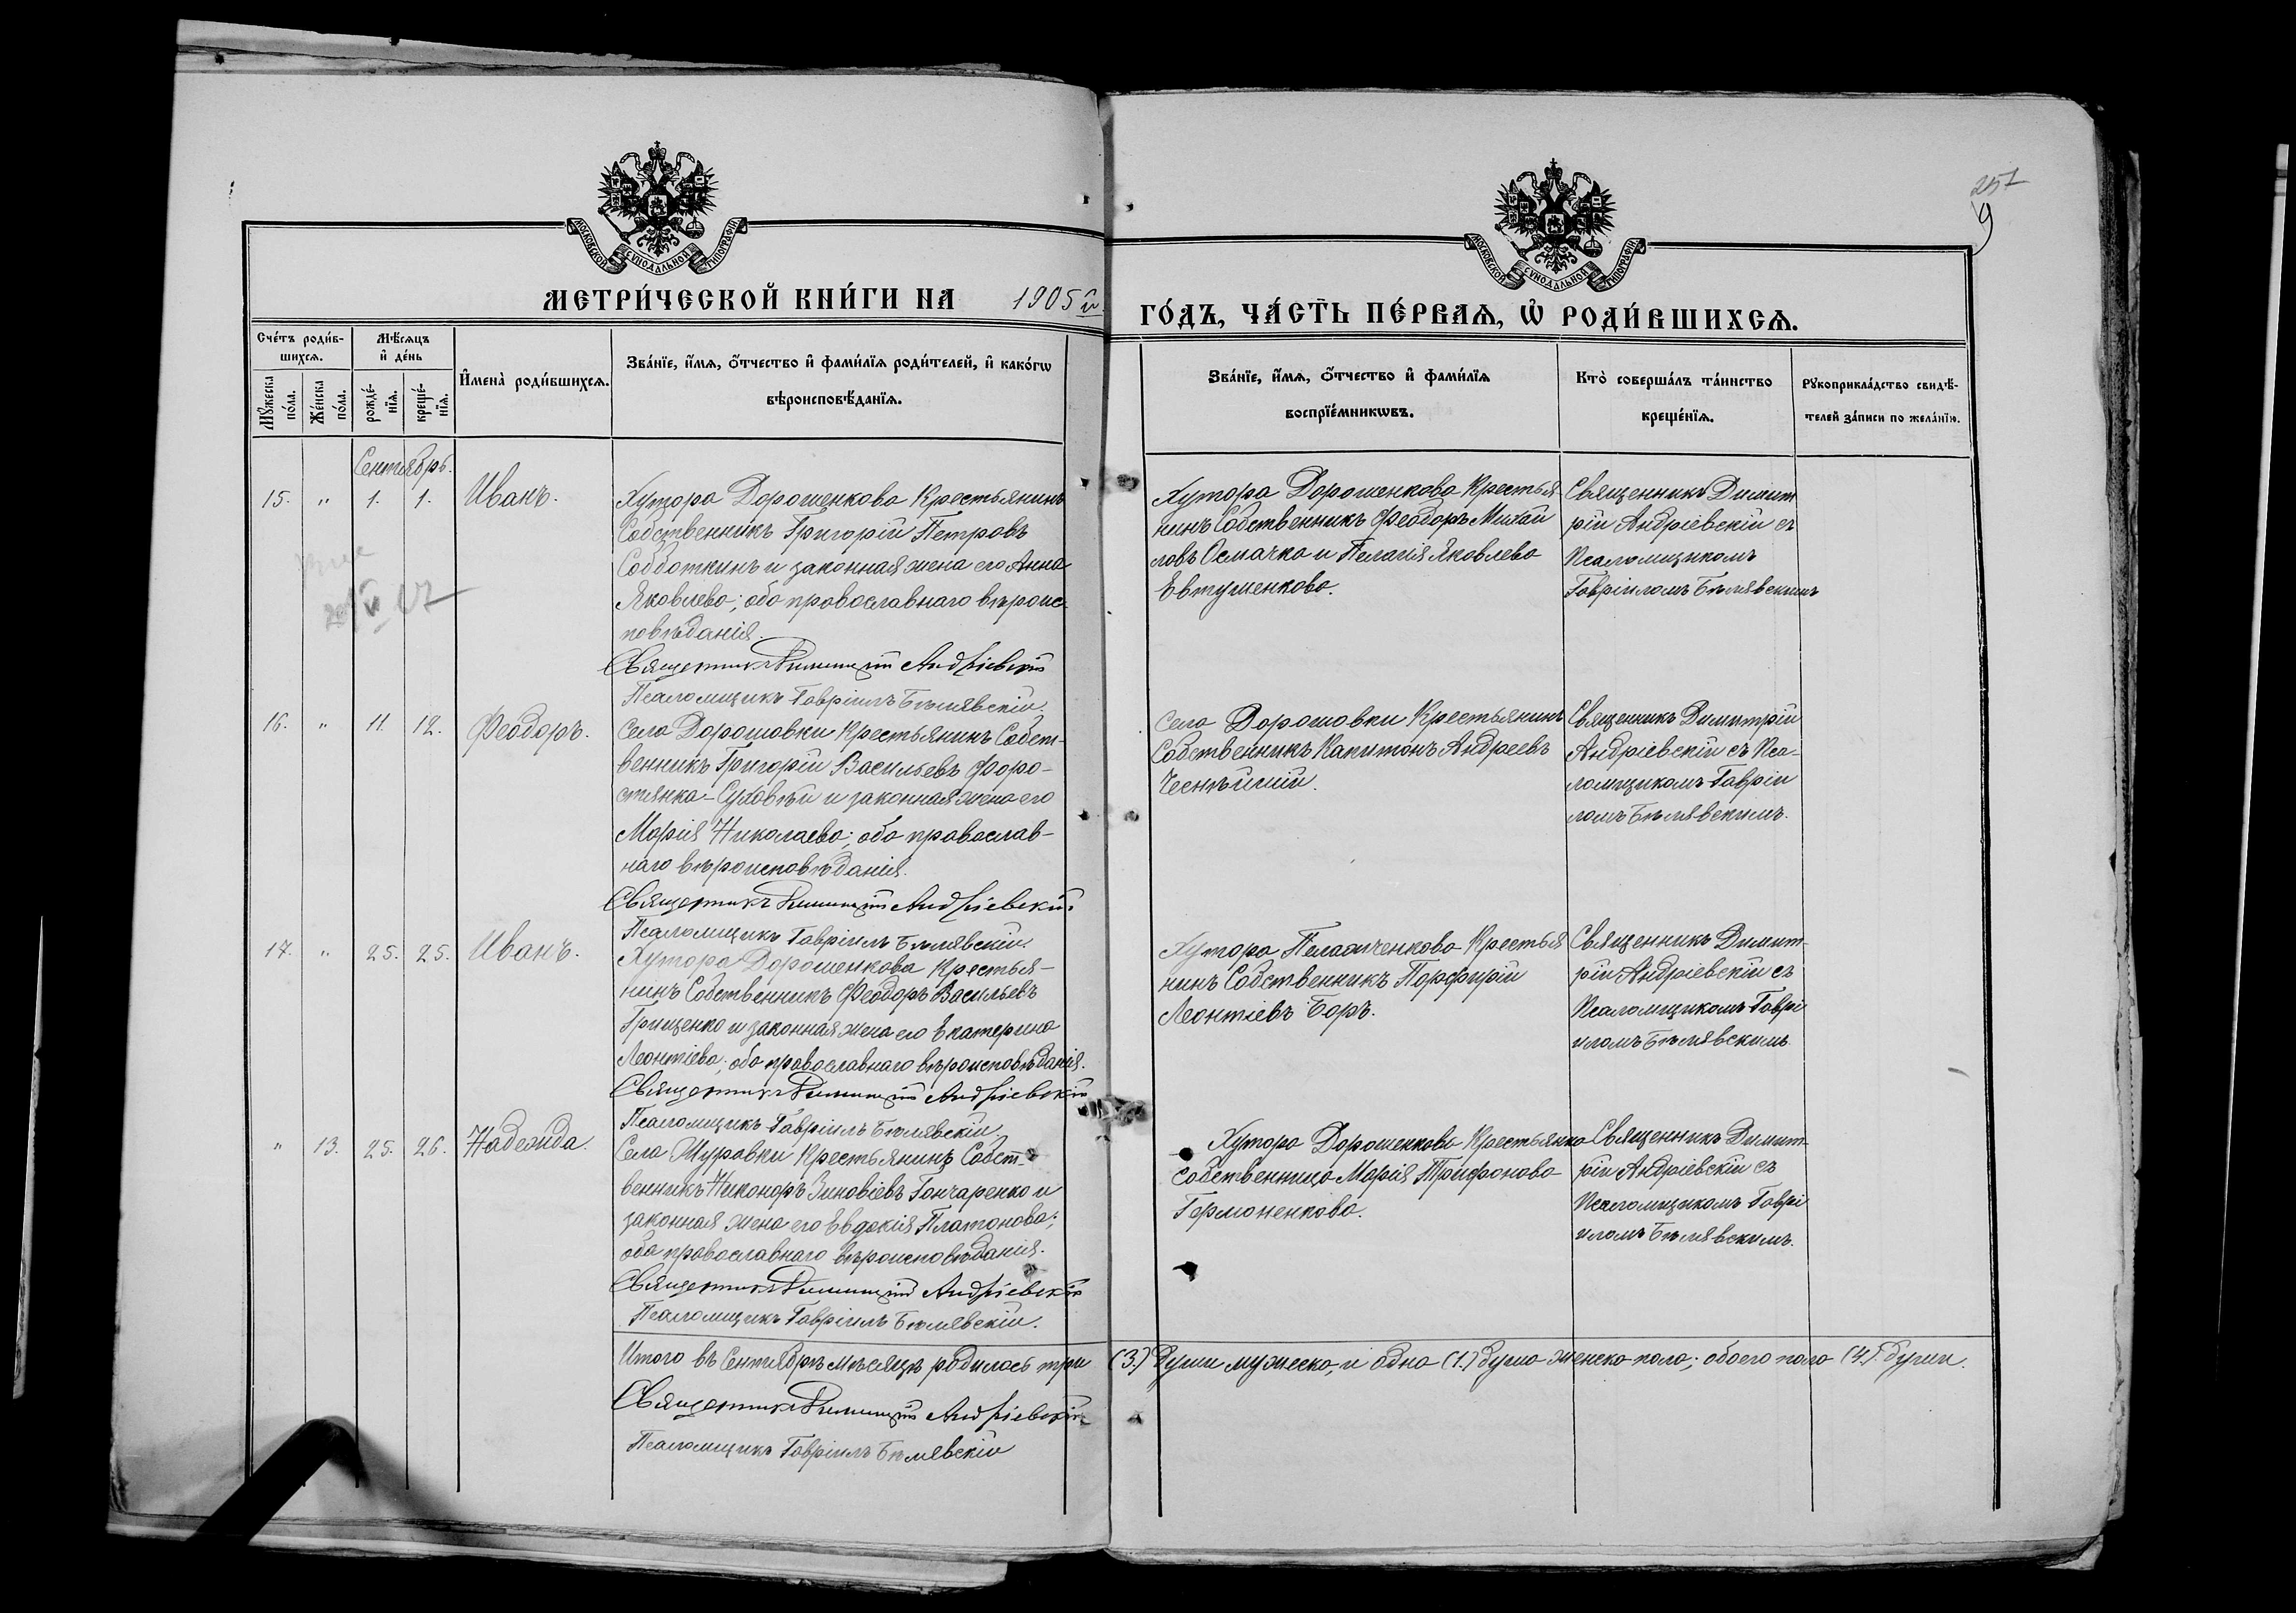 257
9
МОСКОВСКОЙ СѴНОДАЛЬНОЙ ТИПОГРАФІИ
МОСКОВСКОЙ СѴНОДАЛЬНОЙ ТИПОГРАФІИ
МЕТРИ́ЧЕСКОЙ КНИ́ГИ НА 1905 й
ГО́ДЪ, ЧА́СТЬ ПЕ́РВАѦ, Ѡ҆ РОДИ́ВШИХСѦ.
Сче́тъ роди́в-
шихсѧ.
Мꙋ́жеска по́ла.
Же́нска по́ла.
Мѣ́сѧцъ
и҆ де́нь
рожде́-нїѧ.
креще́-нїѧ.
И҆мена̀ роди́вшихсѧ.
Зва́нїе, и҆́мѧ, ѻ҆́тчество и҆ фами́лїѧ роди́телей, и҆ како́гѡ
вѣроисповѣ́данїѧ.
Зва́нїе, и҆́мѧ, ѻ҆́тчество и҆ фами́лїѧ
воспрїе́мникѡвъ.
Кто̀ соверша́лъ та́инство
креще́нїѧ.
Рꙋкоприкла́дство свидѣ́-
телей за́писи по жела́нїю.
Сентябрь.
15. " 1. 1. Иванъ.
Хутора Дорошенкова Крестьянинъ
Собственникъ Григорій Петровъ
Субботкинъ и законная жена его Анна
Яковлева; оба православнаго вѣроис-
повѣданія.
Священникъ Димитрій Андріевскій
Псаломщикъ Гавріилъ Бѣлявскій.
Хутора Дорошенкова Крестья
нинъ Собственникъ Феодоръ Михаи
ловъ Осмачко и Пелагія Яковлева
Евтушенкова.
Священникъ Димит
рій Андріевскій съ
Псаломщикомъ
Гавріиломъ Бѣлявскимъ
16. " 11. 12. Феодоръ.
Села Дорошовки Крестьянинъ Собст-
венникъ Григорій Васильевъ Форо-
стянка-Суховѣй и законная жена его
Марія Николаева; оба православ-
наго вѣроисповѣданія.
Священникъ Димитрій Андріевскій
Псаломщикъ Гавріилъ Бѣлявскій.
Села Дорошовки Крестьянинъ
Собственникъ Капитонъ Андреевъ
Чеснѣйшій.
Священникъ Димитрій
Андріевскій съ Пса-
ломщикомъ Гавріи
ломъ Бѣлявскимъ.
17. " 25. 25. Иванъ.
Хутора Дорошенкова Крестья-
нинъ Собственникъ Феодоръ Васильевъ
Грищенко и законная жена его Екатерина
Леонтіева; оба православнаго вѣроисповѣданія.
Священникъ Димитрій Андріевскій
Псаломщикъ Гавріилъ Бѣлявскій
Хутора Крестья
нинъ Собственникъ Порфирій
Леонтіевъ Боръ.
Священникъ Димит-
рій Андріевскій съ
Псаломщикомъ Гаврі
иломъ Бѣлявскимъ
" 13. 25. 26. Надежда.
Села Муравки Крестьянинъ Собст-
венникъ Никоноръ Зиновіевъ Гончаренко и
законная жена его Евдокія Платонова;
оба православнаго вѣроисповѣданія.
Священникъ Димитрій Андріевскій
Псаломщикъ Гавріилъ Бѣлявскій.
Хутора Дорошенкова Крестьянка
собственница Марія Трифонова
Гермоненкова.
Священникъ Димит-
рій Андріевскій съ
Псаломщикомъ Гаврі
иломъ Бѣлявскимъ.
Итого въ Сентябрѣ мѣсяцѣ родилось три (3.) души мужеска, и одна (1.) душа женска пола; обоего пола (4.) души.
Священникъ Димитрій Андріевскій
Псаломщикъ Гавріилъ Бѣлявскій